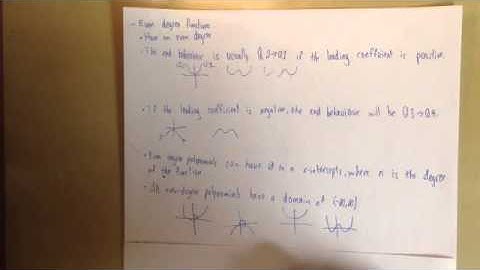 - Even degree functions
• Have an even degree
• The end behaviour is usually Q2→Q1 if the leading coefficient is positive.
• If the leading coefficient is negative, the end behaviour will be Q3→Q4.
• Even degree polynomials can have 0 to n x-intercepts, where n is the degree
of the function
• All even-degree polynomials have a domain of